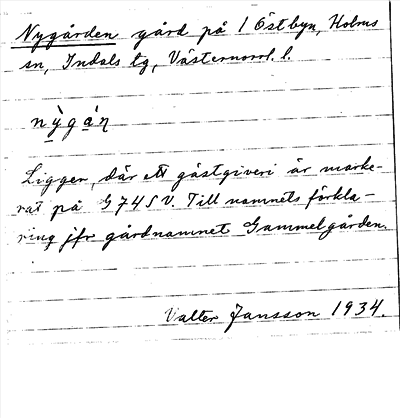 Nygården gård på 1 Östbyn, Holms
sn, Indals tg, Västernorrl. l.
nỳgán
Ligger, där ett gästgiveri är marke-
rat på G74SV. Till namnets förkla-
ring jfr gårdnamnet Gammelgården.
Valter Jansson 1934.